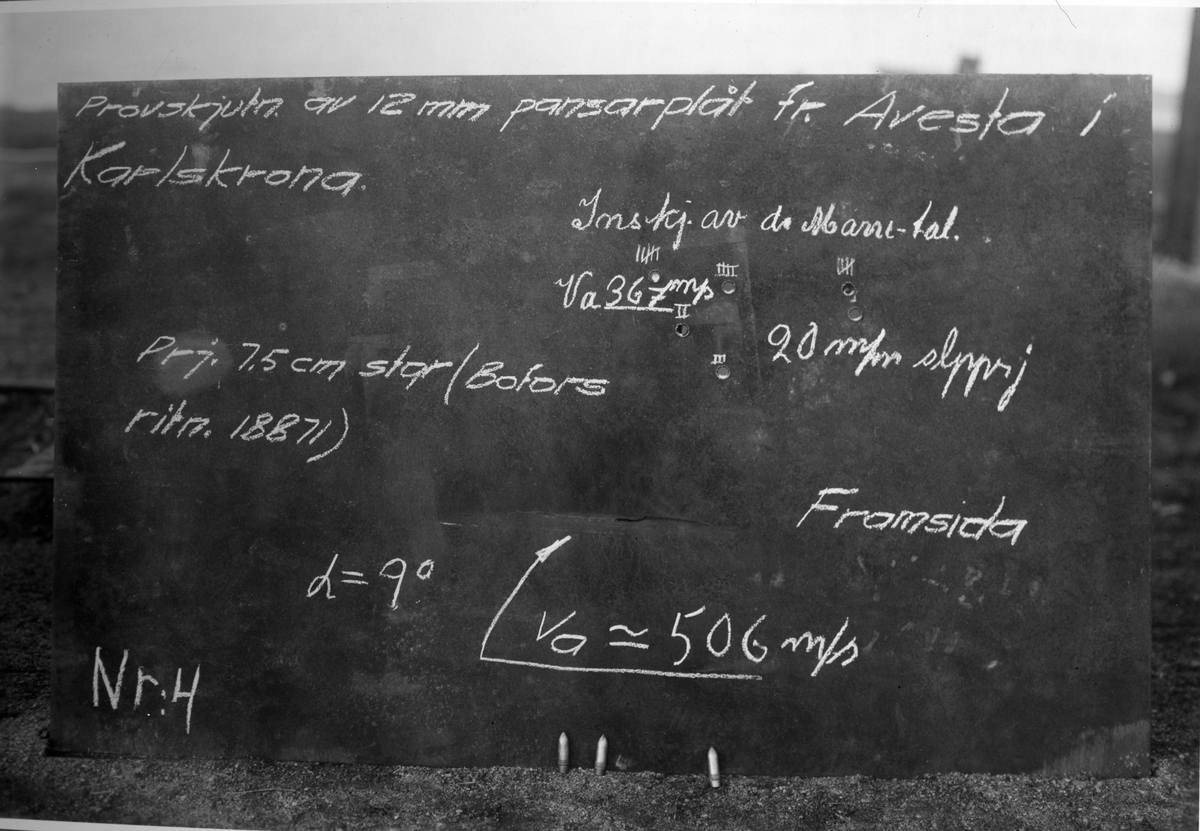 Provskjutn. av 12 mm pansarplåt fr. Avesta i
Karlskrona.
Inskj. av de Marre-tal.
Va 367 m/s
II
III
20 m/m slpprj
Prj. 7.5 cm star (Bofors
ritn. 18871)
Framsida
α = 9°
va ≃ 506 m/s
Nr: 4